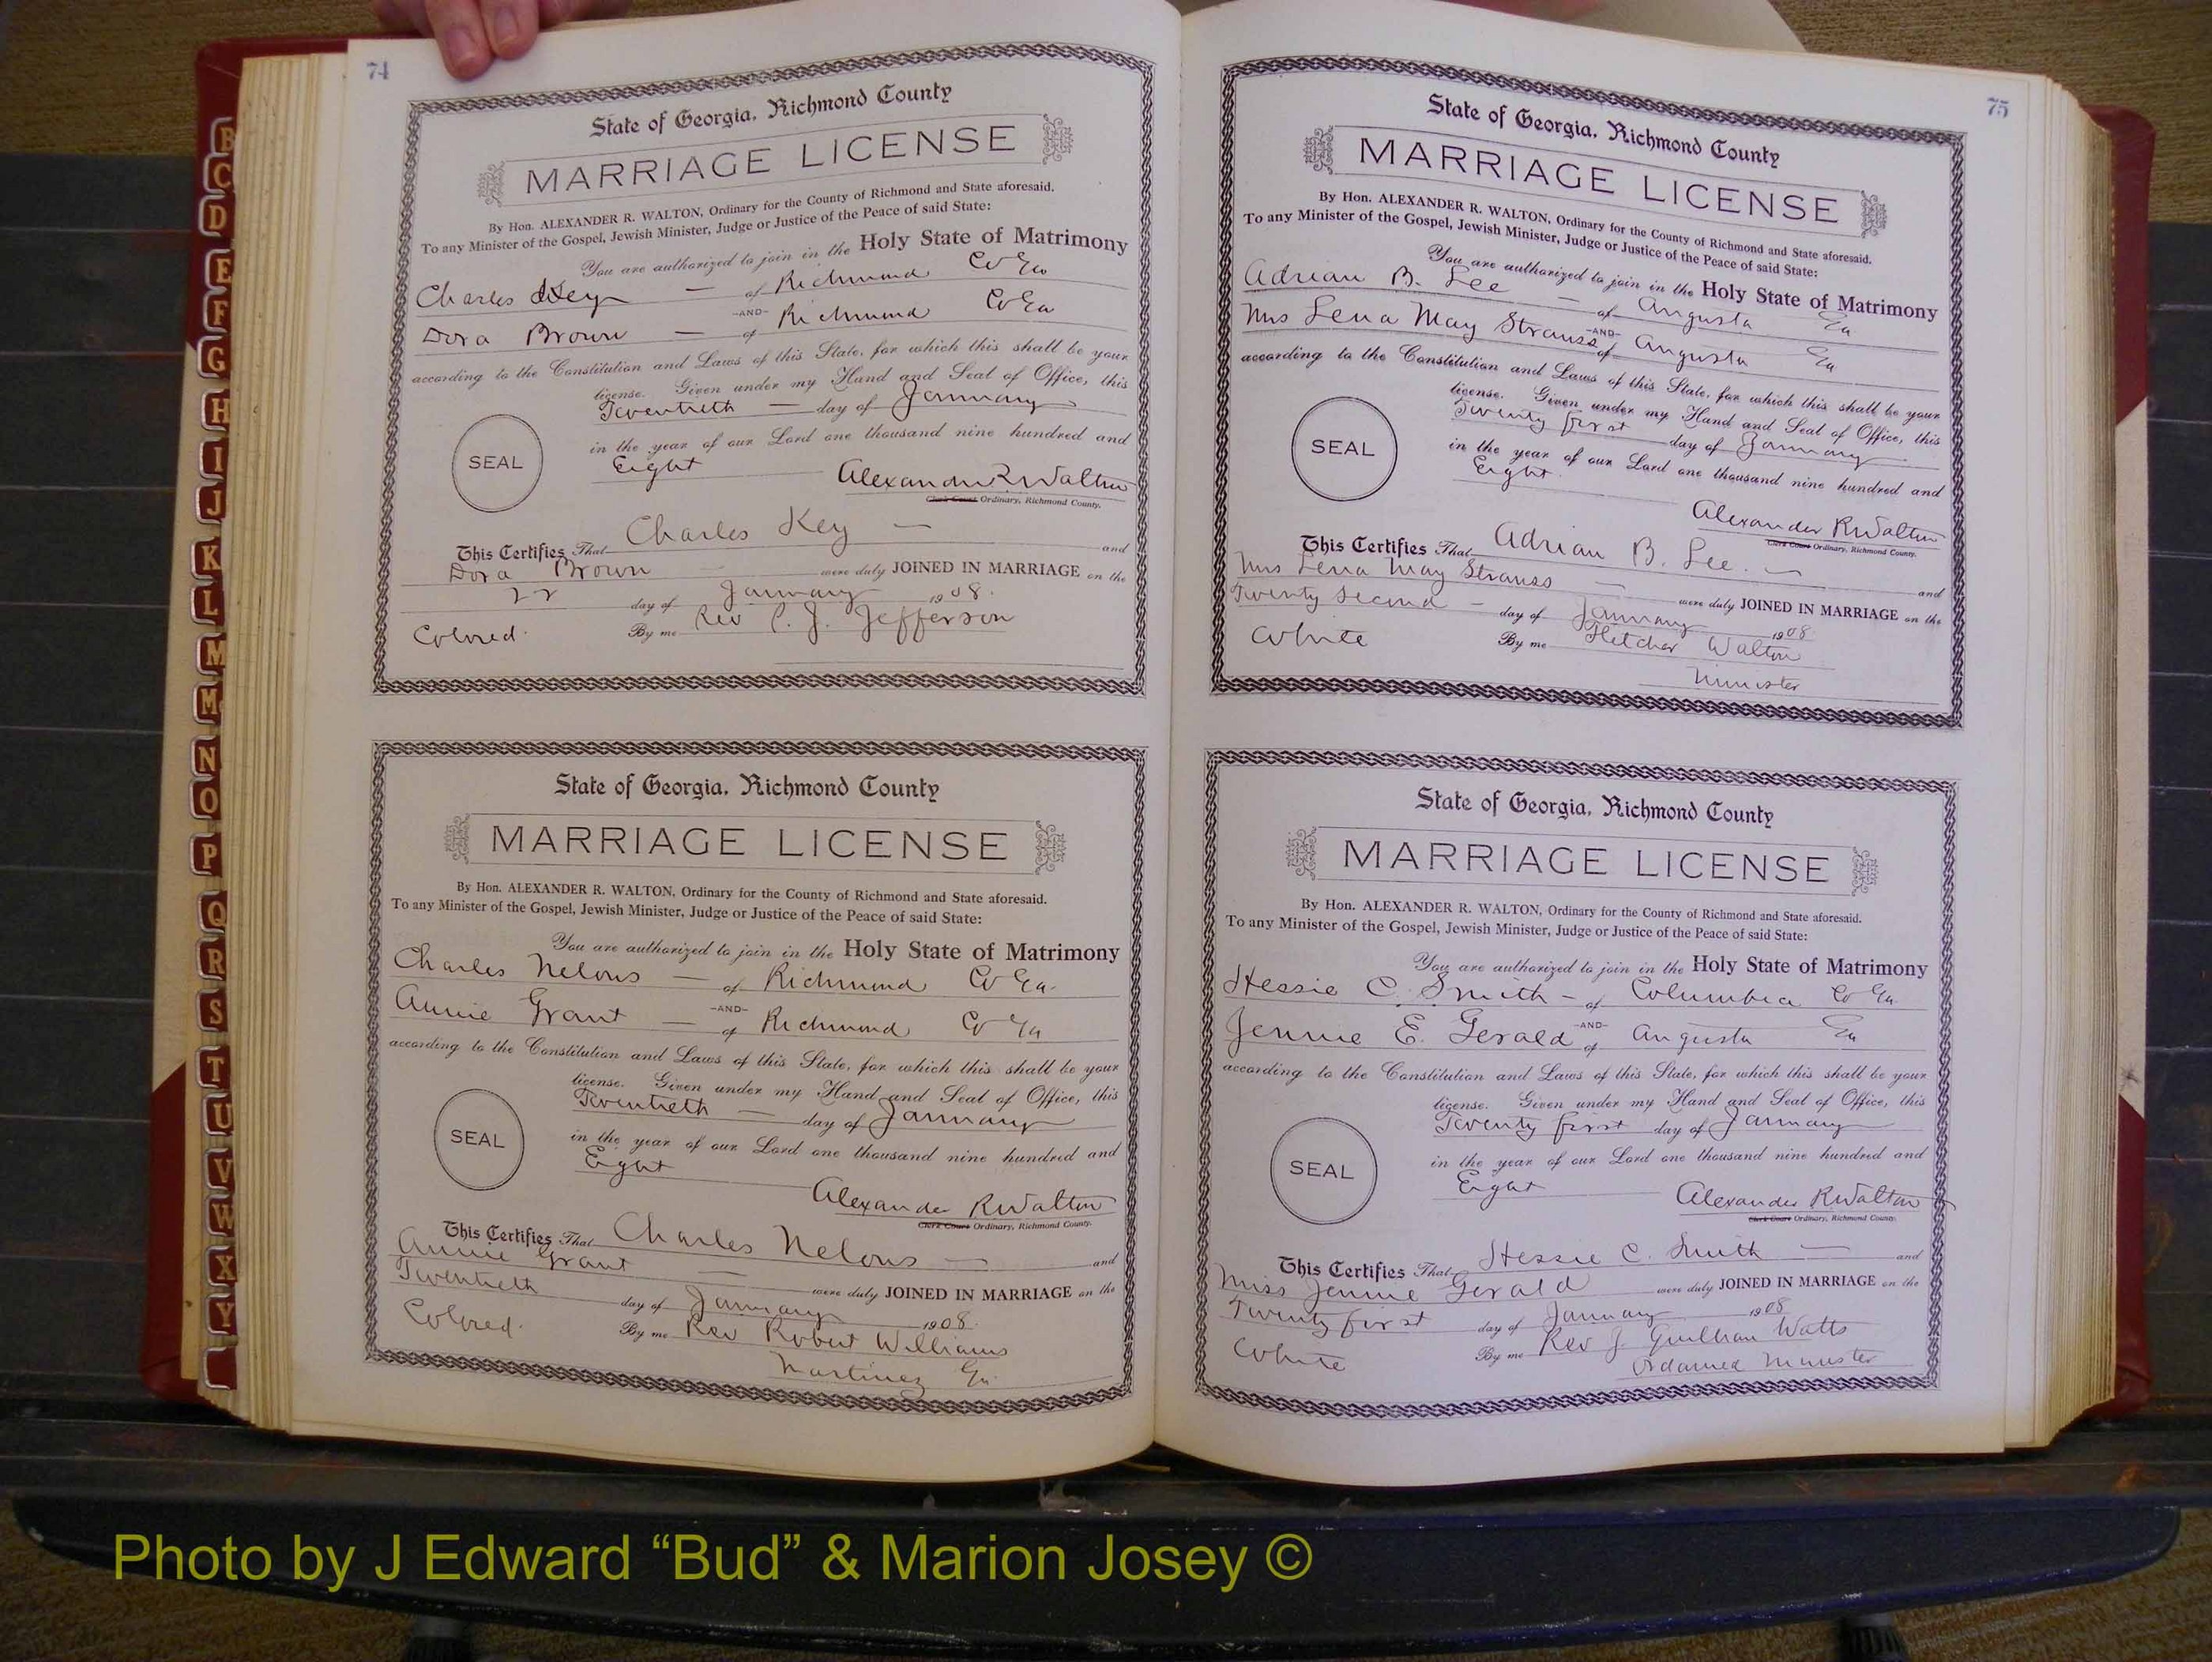 74
State of Georgia, Richmond County
MARRIAGE LICENSE
By Hon. ALEXANDER R. WALTON, Ordinary for the County of Richmond and State aforesaid.
To any Minister of the Gospel, Jewish Minister, Judge or Justice of the Peace of said State:
You are authorized to join in the Holy State of Matrimony
Charles Key — of Richmond Co Ga
-AND-
Dora Brown — of Richmond Co Ga
according to the Constitution and Laws of this State, for which this shall be your
license. Given under my Hand and Seal of Office, this
Twentieth — day of January
in the year of our Lord one thousand nine hundred and
SEAL
Eight
Alexander R Walton
Clerk Court Ordinary, Richmond County.
This Certifies That Charles Key — and
Dora Brown were duly JOINED IN MARRIAGE on the
22 day of January 1908.
Colored. By me Rev P. J. Jefferson
State of Georgia, Richmond County
MARRIAGE LICENSE
By Hon. ALEXANDER R. WALTON, Ordinary for the County of Richmond and State aforesaid.
To any Minister of the Gospel, Jewish Minister, Judge or Justice of the Peace of said State:
You are authorized to join in the Holy State of Matrimony
Charles Nelous — of Richmond Co Ga.
-AND-
Annie Grant — of Richmond Co Ga
according to the Constitution and Laws of this State, for which this shall be your
license. Given under my Hand and Seal of Office, this
Twentieth — day of January
in the year of our Lord one thousand nine hundred and
SEAL
Eight
Alexander R Walton
Clerk Court Ordinary, Richmond County.
This Certifies That Charles Nelous — and
Annie Grant — were duly JOINED IN MARRIAGE on the
Twentieth day of January 1908.
Colored. By me Rev Robert Williams
Martinez Ga.
75
State of Georgia, Richmond County
MARRIAGE LICENSE
By Hon. ALEXANDER R. WALTON, Ordinary for the County of Richmond and State aforesaid.
To any Minister of the Gospel, Jewish Minister, Judge or Justice of the Peace of said State:
You are authorized to join in the Holy State of Matrimony
Adrian B. Lee — of Augusta Ga
-AND-
Mrs Lena May Strauss of Augusta Ga
according to the Constitution and Laws of this State, for which this shall be your
license. Given under my Hand and Seal of Office, this
Twenty first day of January
in the year of our Lord one thousand nine hundred and
SEAL
Eight.
Alexander R Walton
Clerk Court Ordinary, Richmond County.
This Certifies That Adrian B. Lee. — and
Mrs Lena May Strauss — were duly JOINED IN MARRIAGE on the
Twenty Second — day of January 1908
White By me Fletcher Walton
Minister
State of Georgia, Richmond County
MARRIAGE LICENSE
By Hon. ALEXANDER R. WALTON, Ordinary for the County of Richmond and State aforesaid.
To any Minister of the Gospel, Jewish Minister, Judge or Justice of the Peace of said State:
You are authorized to join in the Holy State of Matrimony
Hessie C. Smith — of Columbia Co Ga.
-AND-
Jennie E. Gerald of Augusta Ga
according to the Constitution and Laws of this State, for which this shall be your
license. Given under my Hand and Seal of Office, this
Twenty first day of January
in the year of our Lord one thousand nine hundred and
SEAL
Eight
Alexander R Walton
Clerk Court Ordinary, Richmond County.
This Certifies That Hessie C. Smith — and
Miss Jennie Gerald were duly JOINED IN MARRIAGE on the
Twenty first day of January 1908
White By me Rev J. Quillian Watts
Ordained Minister
B
C
D
E
F
G
H
I
J
K
L
M
M
N
O
P
Q
R
S
T
U
V
W
X
Y
Photo by J Edward “Bud” & Marion Josey ©